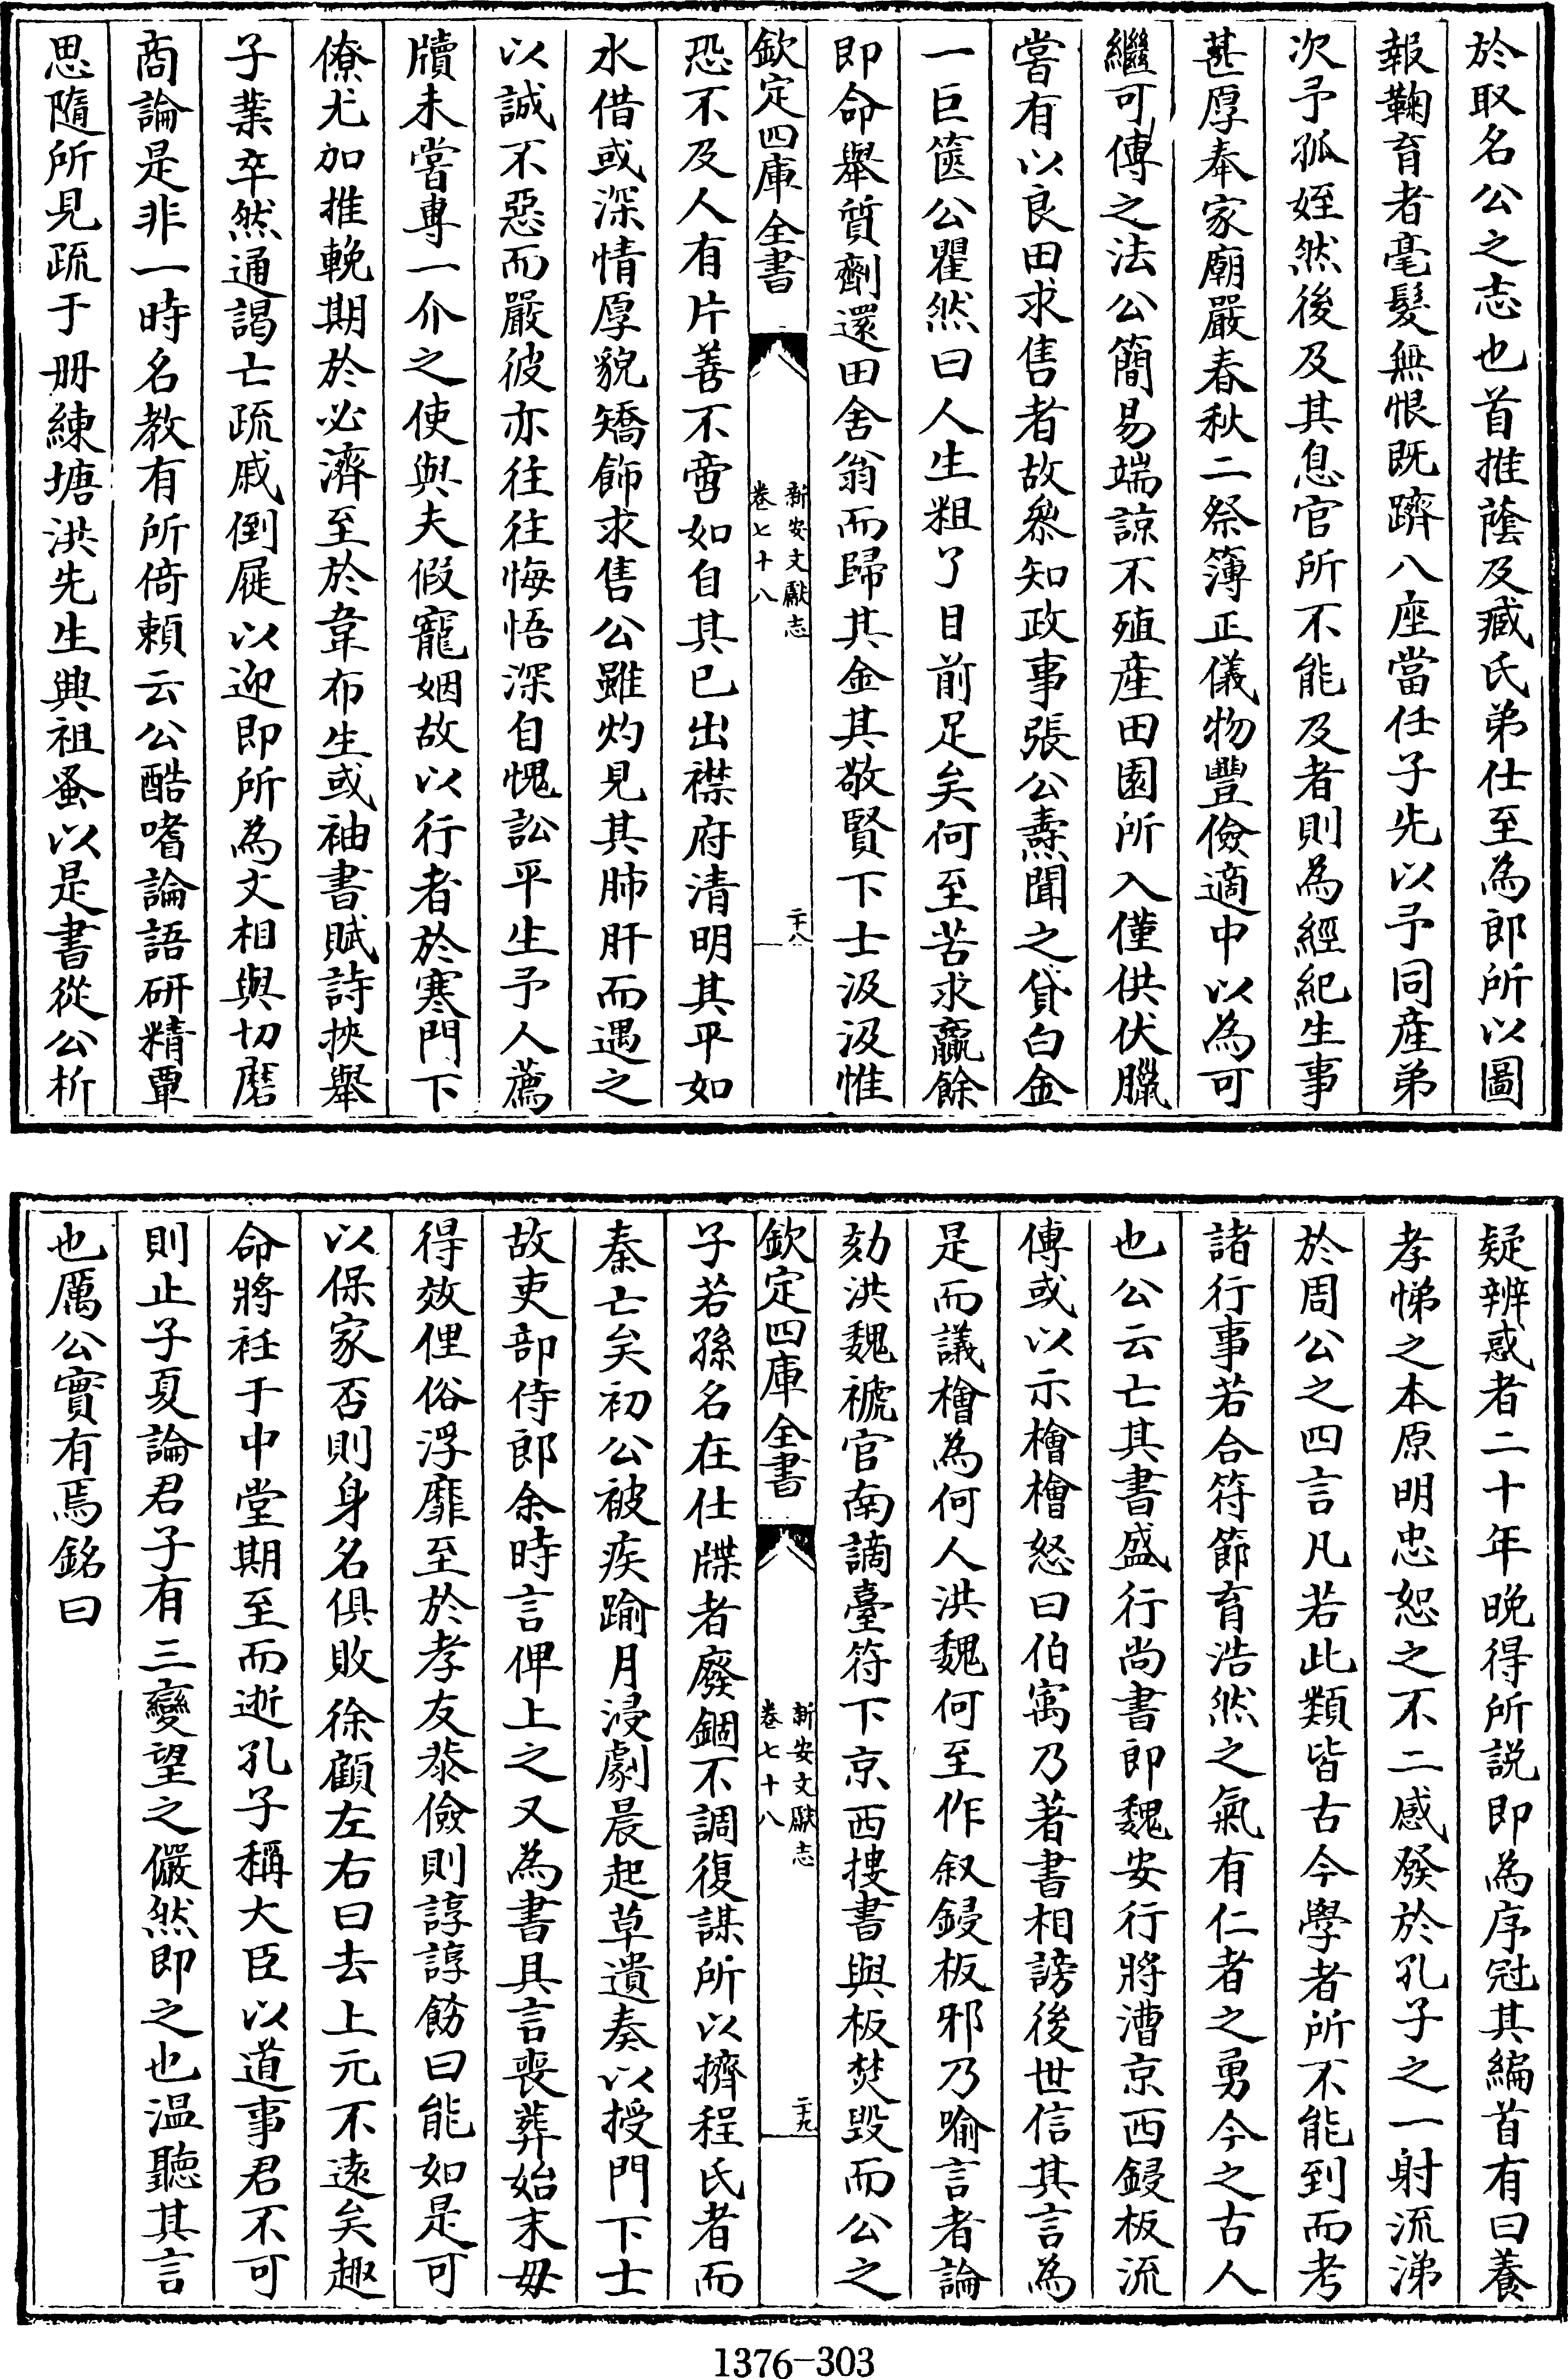 於取名公之志也首推蔭及臧氏弟仕至為郎所以圖
報鞠育者毫髮無恨既躋八座當任子先以予同產弟
次予孤姪然後及其息官所不能及者則為經紀生事
甚厚奉家廟嚴春秋二祭簿正儀物豐儉適中以為可
繼可傳之法公簡易端諒不殖產田園所入僅供伏臘
嘗有以良田求售者故叅知政事張公燾聞之貸白金
一巨篋公瞿然曰人生粗了目前足矣何至苦求贏餘
即命舉質劑還田舍翁而歸其金其敬賢下士汲汲惟
欽定四庫全書
新安文獻志
卷七十八
二十八
恐不及人有片善不啻如自其已出襟府清明其平如
水借或深情厚貌矯飾求售公雖灼見其肺肝而遇之
以誠不惡而嚴彼亦往往悔悟深自愧訟平生予人薦
牘未嘗專一介之使與夫假寵姻故以行者於寒門下
僚尤加推輓期於必濟至於韋布生或袖書賦詩挾舉
子業卒然通謁亡疏戚倒屣以迎即所為文相與切磨
商論是非一時名教有所倚賴云公酷嗜論語研精覃
思隨所見疏于冊練塘洪先生興祖蚤以是書從公析
疑辨惑者二十年晚得所說即為序冠其編首有曰養
孝悌之本原明忠恕之不二感發於孔子之一射流涕
於周公之四言凡若此類皆古今學者所不能到而考
諸行事若合符節育浩然之氣有仁者之勇今之古人
也公云亡其書盛行尚書郎魏安行將漕京西鋟板流
傳或以示檜檜怒曰伯寓乃著書相謗後世信其言為
是而議檜為何人洪魏何至作叙鋟板邪乃喻言者論
劾洪魏褫官南謫臺符下京西搜書與板焚毀而公之
欽定四庫全書
新安文獻志
卷七十八
二十九
子若孫名在仕牒者廢錮不調復謀所以擠程氏者而
秦亡矣初公被疾踰月浸劇晨起草遺奏以授門下士
故吏部侍郎余時言俾上之又為書具言喪葬始末毋
得效俚俗浮靡至於孝友恭儉則諄諄飭曰能如是可
以保家否則身名俱敗徐顧左右曰去上元不遠矣趣
命將衽于中堂期至而逝孔子稱大臣以道事君不可
則止子夏論君子有三變望之儼然即之也溫聽其言
也厲公實有焉銘曰
1376-303